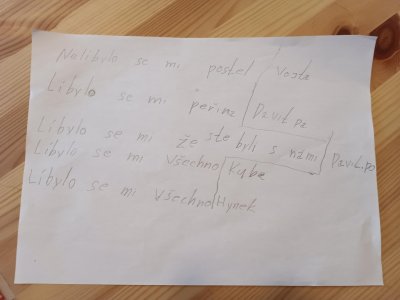 Nelíbylo se mi postel Vojta
Líbylo se mi peřina David.pa
Líbylo se mi že ste byli s námi David.pa
Líbylo se mi všechno Kuba
Líbylo se mi všechno Hynek